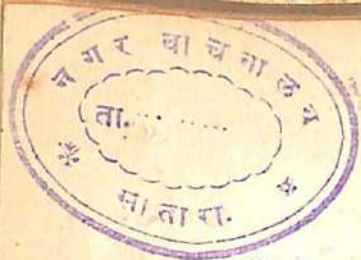 नगर वाचनालय
ता. .........
सातारा.